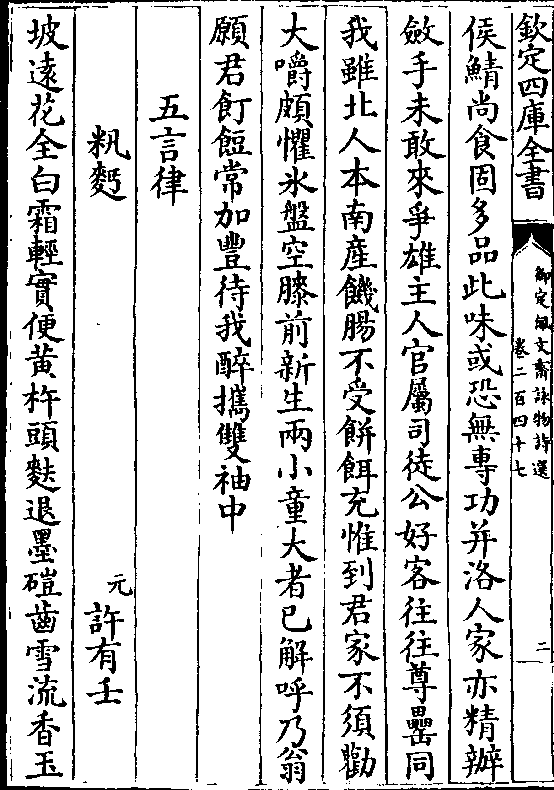 欽定四庫全書
御定佩文齋詠物詩選
卷二百四十七
二
侯鯖尚食固多品此味或恐無專功并洛人家亦精辦
斂手未敢來爭雄主人官屬司徒公好客往往尊罍同
我雖北人本南產饑腸不受餅餌充惟到君家不須勸
大嚼頗懼氷盤空膝前新生兩小童大者已解呼乃翁
願君飣餖常加豐待我醉攜雙袖中
五言律
籸麫
元
許有壬
坡遠花全白霜輕實便黄杵頭麩退墨磑齒雪流香玉